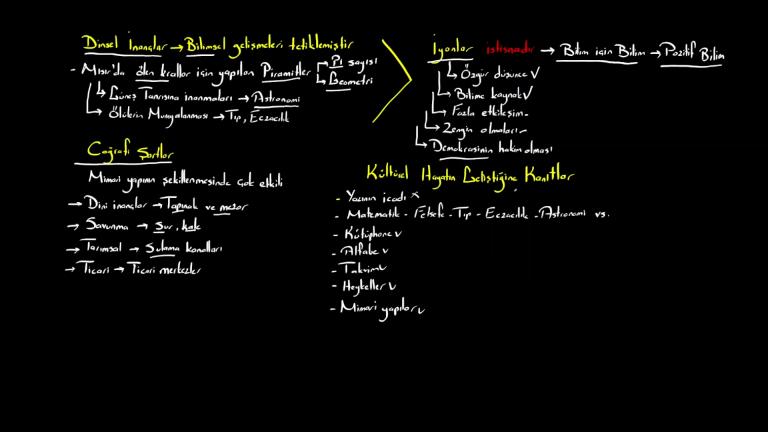 Dinsel İnançlar → Bilimsel gelişmeleri tetiklemiştir
- Mısır'da ölen krallar için yapılan Piramitler → Pi sayısı
→ Geometri
→ Güneş Tanrısına inanmaları → Astronomi
→ Ölülerin Mumyalanması → Tıp, Eczacılık
Coğrafi Şartlar
Mimari yapının şekillenmesinde çok etkili
→ Dini inançlar → Tapınak ve mezar
→ Savunma → Sur, kale
→ Tarımsal → Sulama kanalları
→ Ticari → Ticari merkezler
İyonlar istisnadır → Bilim için Bilim → Pozitif Bilim
→ Özgür düşünce ✓
→ Bilime kaynak ✓
→ Fazla etkileşim -
→ Zengin olmaları -
→ Demokrasinin hakim olması
Kültürel Hayatın Geliştiğine Kanıtlar
- Yazının icadı x
- Matematik - Felsefe - Tıp - Eczacılık - Astronomi vs.
- Kütüphane ✓
- Alfabe ✓
- Takvim ✓
- Heykeller ✓
- Mimari yapılar ✓